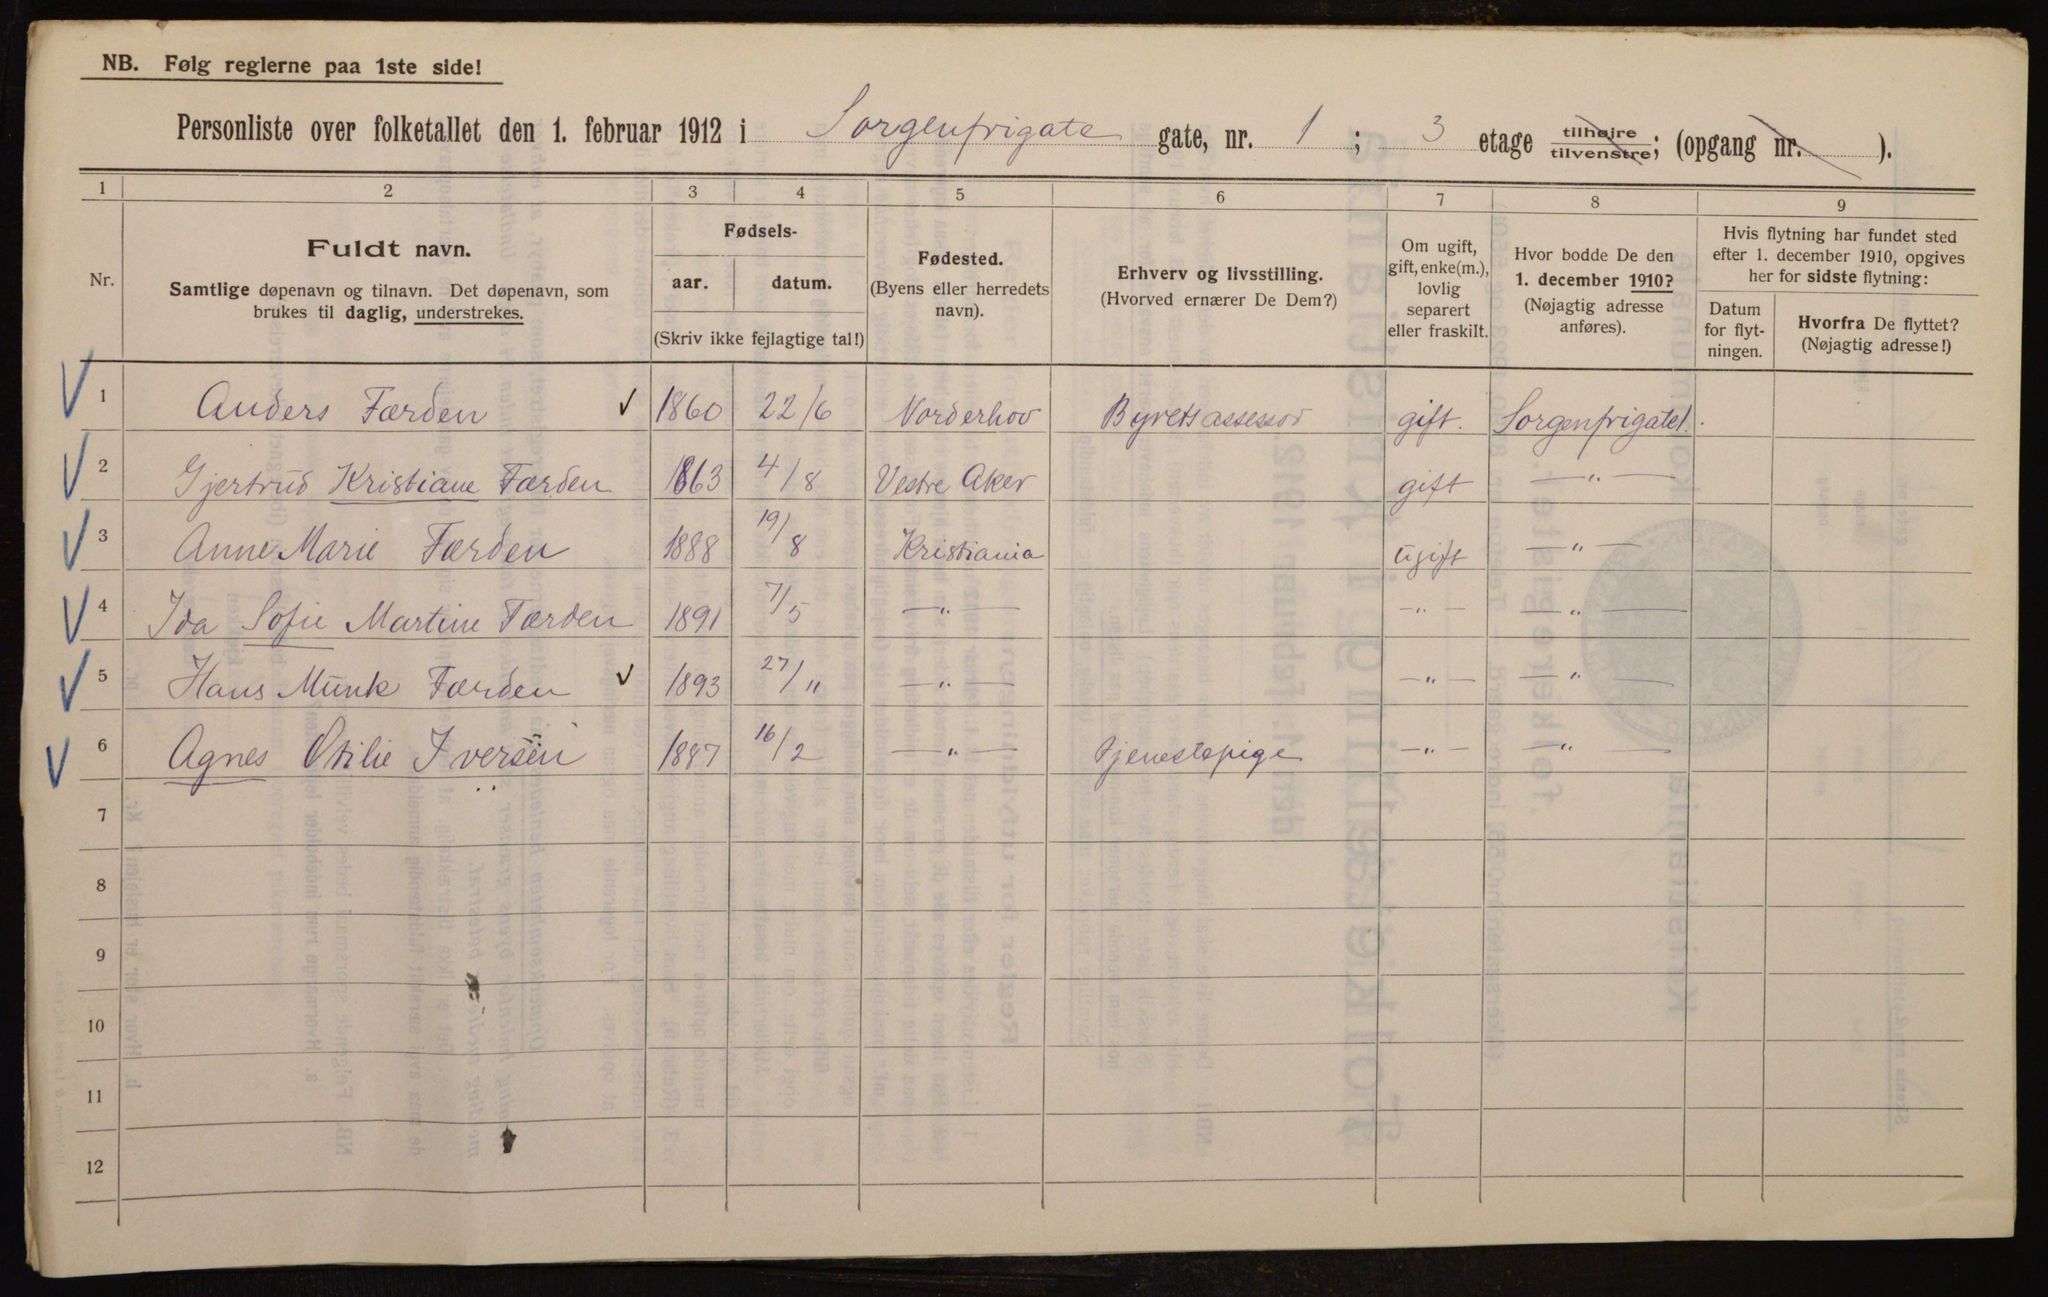 NB. Følg reglerne paa 1ste side!
Personliste over folketallet den 1. februar 1912 i Sorgenfrigate gate, nr. 1 ; 3 etage tilhøjre tilvenstre; (opgang nr. ).
1 2 3 4 5 6 7 8 9
Nr.
Fuldt navn.
Samtlige døpenavn og tilnavn. Det døpenavn, som
brukes til daglig, understrekes.
Fødsels-
aar. datum.
(Skriv ikke fejlagtige tal!)
Fødested.
(Byens eller herredets
navn).
Erhverv og livsstilling.
(Hvorved ernærer De Dem?)
Om ugift,
gift, enke(m.),
lovlig
separert
eller fraskilt.
Hvor bodde De den
1. december 1910?
(Nøjagtig adresse
anføres).
Hvis flytning har fundet sted
efter 1. december 1910, opgives
her for sidste flytning:
Datum
for flyt-
ningen.
Hvorfra De flyttet?
(Nøjagtig adresse!)
1 Anders Færden 1860 22/6 Norderhov Byretsassessor gift. Sorgenfrigate 1.
2 Gjertrud Kristiane Færden 1863 4/8 Vestre Aker gift —"—
3 Anne Marie Færden 1888 19/8 Kristiania ugift —"—
4 Ida Sofie Martine Færden 1891 7/5 —"— —"— —"—
5 Hans Munk Færden 1893 27/11 —"— —"— —"—
6 Agnes Otilie Iversen 1887 16/2 —"— Tjenestepige —"— —"—
7
8
9
10
11
12